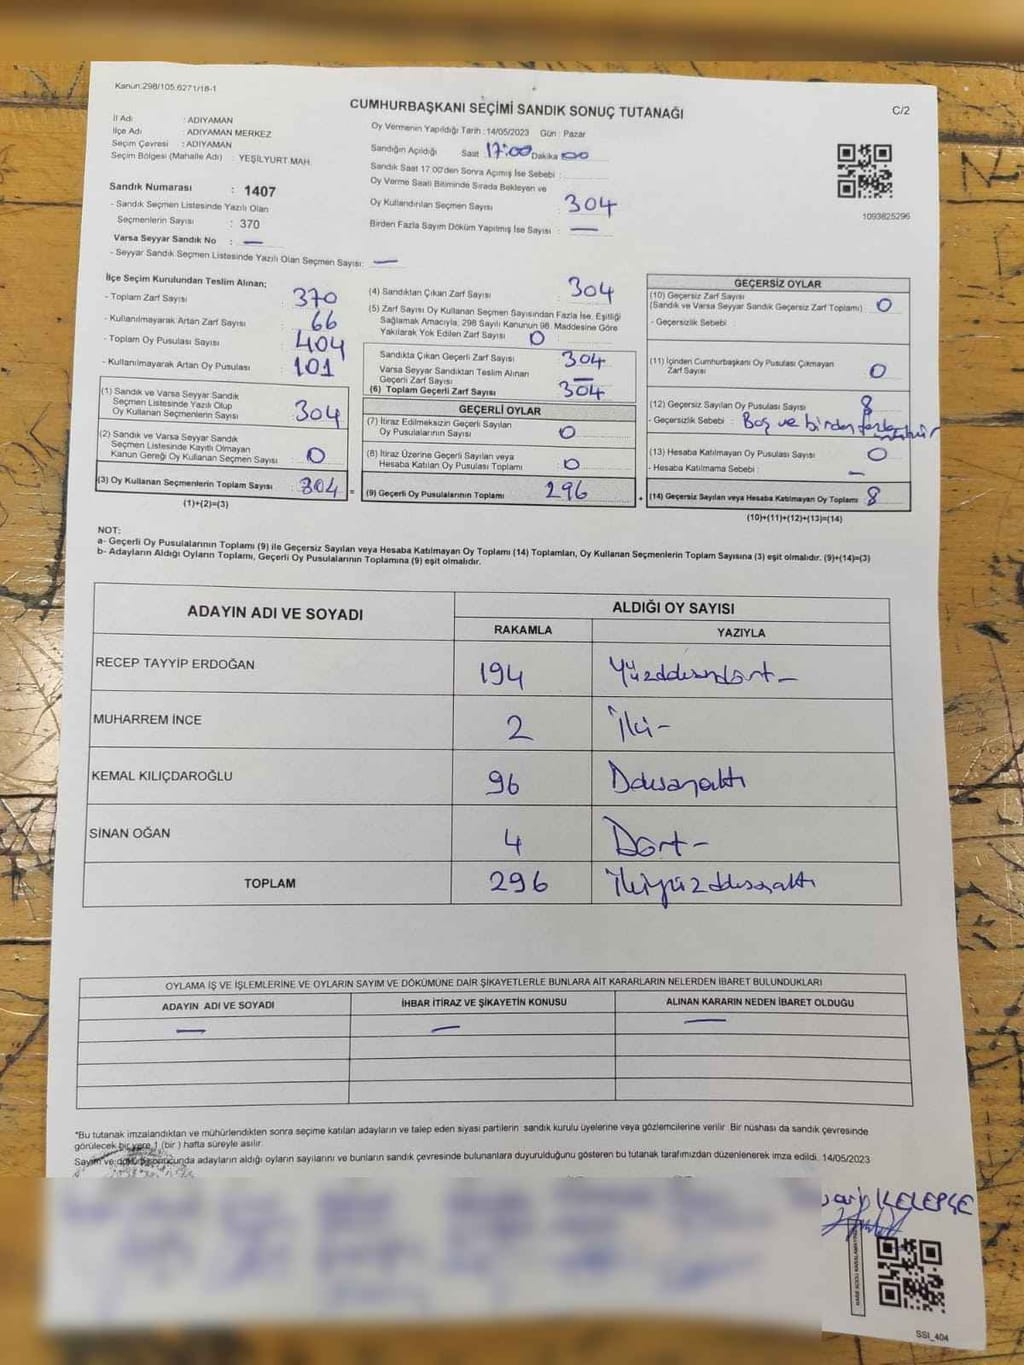 Kanun:298/105.6271/18-1
CUMHURBAŞKANI SEÇİMİ SANDIK SONUÇ TUTANAĞI
C/2
İl Adı : ADIYAMAN
İlçe Adı : ADIYAMAN MERKEZ
Seçim Çevresi : ADIYAMAN
Seçim Bölgesi (Mahalle Adı) : YEŞİLYURT MAH.
Sandık Numarası : 1407
- Sandık Seçmen Listesinde Yazılı Olan
Seçmenlerin Sayısı : 370
Varsa Seyyar Sandık No : —
- Seyyar Sandık Seçmen Listesinde Yazılı Olan Seçmen Sayısı: —
Oy Vermenin Yapıldığı Tarih : 14/05/2023 Gün : Pazar
Sandığın Açıldığı Saat 17:00 Dakika 00
Sandık Saat 17:00'den Sonra Açımış İse Sebebi :
Oy Verme Saati Bitiminde Sırada Bekleyen ve
Oy Kullandırılan Seçmen Sayısı : 304
Birden Fazla Sayım Döküm Yapılmış İse Sayısı : —
1093825296
İlçe Seçim Kurulundan Teslim Alınan;
- Toplam Zarf Sayısı : 370
- Kullanılmayarak Artan Zarf Sayısı : 66
- Toplam Oy Pusulası Sayısı : 404
- Kullanılmayarak Artan Oy Pusulası : 101
(1) Sandık ve Varsa Seyyar Sandık
Seçmen Listesinde Yazılı Olup
Oy Kullanan Seçmenlerin Sayısı : 304
(2) Sandık ve Varsa Seyyar Sandık
Seçmen Listesinde Kayıtlı Olmayan
Kanun Gereği Oy Kullanan Seçmen Sayısı : 0
(3) Oy Kullanan Seçmenlerin Toplam Sayısı : 304
(1)+(2)=(3)
(4) Sandıktan Çıkan Zarf Sayısı : 304
(5) Zarf Sayısı Oy Kullanan Seçmen Sayısından Fazla İse, Eşitliği
Sağlamak Amacıyla, 298 Sayılı Kanunun 98. Maddesine Göre
Yakılarak Yok Edilen Zarf Sayısı : 0
Sandıkta Çıkan Geçerli Zarf Sayısı : 304
Varsa Seyyar Sandıktan Teslim Alınan
Geçerli Zarf Sayısı : —
(6) Toplam Geçerli Zarf Sayısı : 304
GEÇERLİ OYLAR
(7) İtiraz Edilmeksizin Geçerli Sayılan
Oy Pusulalarının Sayısı : 0
(8) İtiraz Üzerine Geçerli Sayılan veya
Hesaba Katılan Oy Pusulası Toplamı : 0
= (9) Geçerli Oy Pusulalarının Toplamı : 296
GEÇERSİZ OYLAR
(10) Geçersiz Zarf Sayısı
(Sandık ve Varsa Seyyar Sandık Geçersiz Zarf Toplamı) : 0
- Geçersizlik Sebebi :
(11) İçinden Cumhurbaşkanı Oy Pusulası Çıkmayan
Zarf Sayısı : 0
(12) Geçersiz Sayılan Oy Pusulası Sayısı : 8
- Geçersizlik Sebebi : Boş ve birden fazla
(13) Hesaba Katılmayan Oy Pusulası Sayısı : 0
- Hesaba Katılmama Sebebi : —
+ (14) Geçersiz Sayılan veya Hesaba Katılmayan Oy Toplamı : 8
(10)+(11)+(12)+(13)=(14)
NOT:
a- Geçerli Oy Pusulalarının Toplamı (9) ile Geçersiz Sayılan veya Hesaba Katılmayan Oy Toplamı (14) Toplamları, Oy Kullanan Seçmenlerin Toplam Sayısına (3) eşit olmalıdır. (9)+(14)=(3)
b- Adayların Aldığı Oyların Toplamı, Geçerli Oy Pusulalarının Toplamına (9) eşit olmalıdır.
ADAYIN ADI VE SOYADI ALDIĞI OY SAYISI
RAKAMLA YAZIYLA
RECEP TAYYİP ERDOĞAN 194 Yüzdoksandört —
MUHARREM İNCE 2 İki —
KEMAL KILIÇDAROĞLU 96 Doksanaltı
SİNAN OĞAN 4 Dört —
TOPLAM 296 İkiyüzdoksanaltı
OYLAMA İŞ VE İŞLEMLERİNE VE OYLARIN SAYIM VE DÖKÜMÜNE DAİR ŞİKAYETLERLE BUNLARA AİT KARARLARIN NELERDEN İBARET BULUNDUKLARI
ADAYIN ADI VE SOYADI İHBAR İTİRAZ VE ŞİKAYETİN KONUSU ALINAN KARARIN NEDEN İBARET OLDUĞU
— — —
*Bu tutanak imzalandıktan ve mühürlendikten sonra seçime katılan adayların ve talep eden siyasi partilerin sandık kurulu üyelerine veya gözlemcilerine verilir. Bir nüshası da sandık çevresinde
görülecek bir yere 1 (bir ) hafta süreyle asılır.
Sayım ve döküm sonucunda adayların aldığı oyların sayılarını ve bunların sandık çevresinde bulunanlara duyurulduğunu gösteren bu tutanak tarafımızdan düzenlenerek imza edildi. 14/05/2023
KELEPÇE
SSI_404